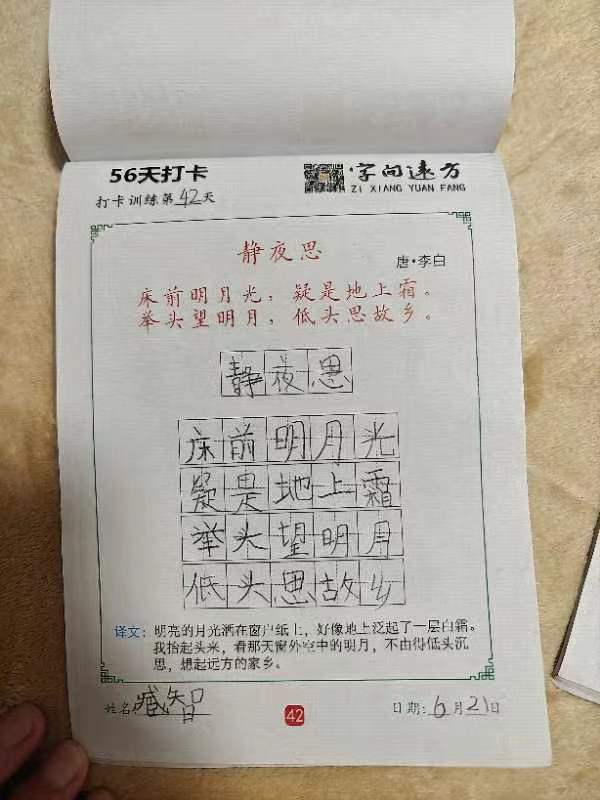 56天打卡
字间远方
ZI XIANG YUAN FANG
打卡训练第42天
静夜思
唐·李白
床前明月光，疑是地上霜。
举头望明月，低头思故乡。
静夜思
床前明月光
疑是地上霜
举头望明月
低头思故乡
译文：明亮的月光洒在窗户纸上，好像地上泛起了一层白霜。
我抬起头来，看那天窗外空中的明月，不由得低头沉
思，想起远方的家乡。
姓名：智
42
日期：6月21日